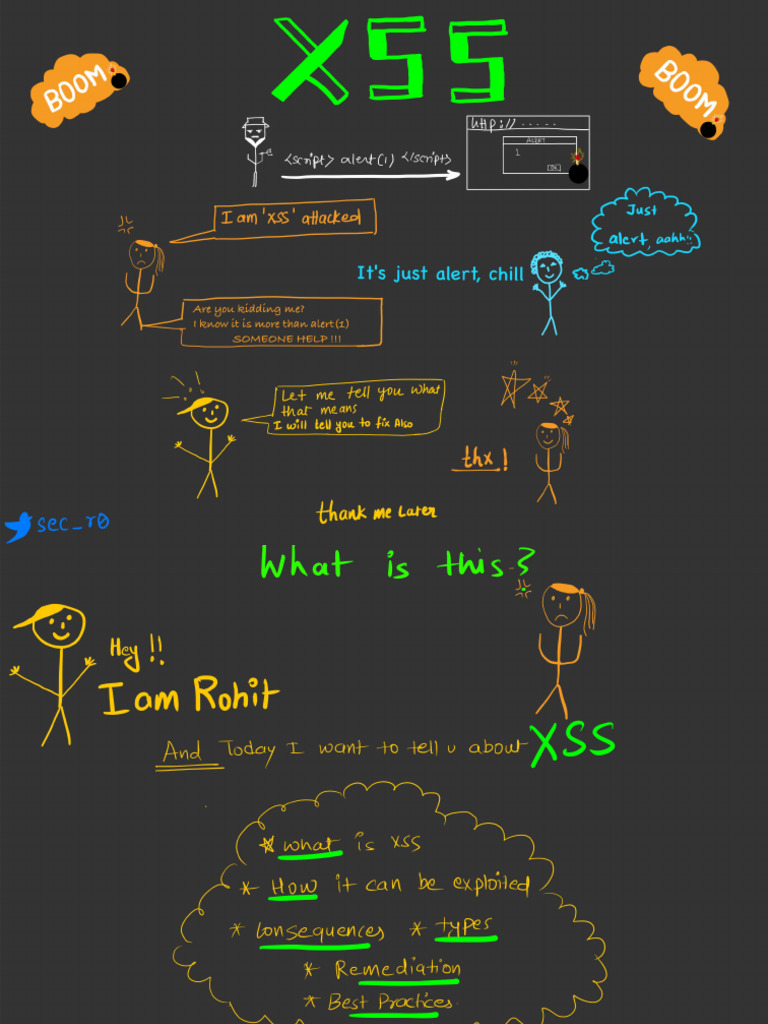 XSS
BOOM
BOOM
http://.....
<script> alert(1) </script>
ALERT
1
OK
I am 'XSS' attacked
Just
alert, aahh!!
It's just alert, chill
Are you kidding me?
I know it is more than alert(1)
SOMEONE HELP !!!
Let me tell you what
that means
I will tell you to fix Also
thx!
thank me Later
sec_r0
What is this?
Hey !!
I am Rohit
And Today I want to tell u about XSS
* what is XSS
* How it can be exploited
* Consequences * types
* Remediation
* Best Practices